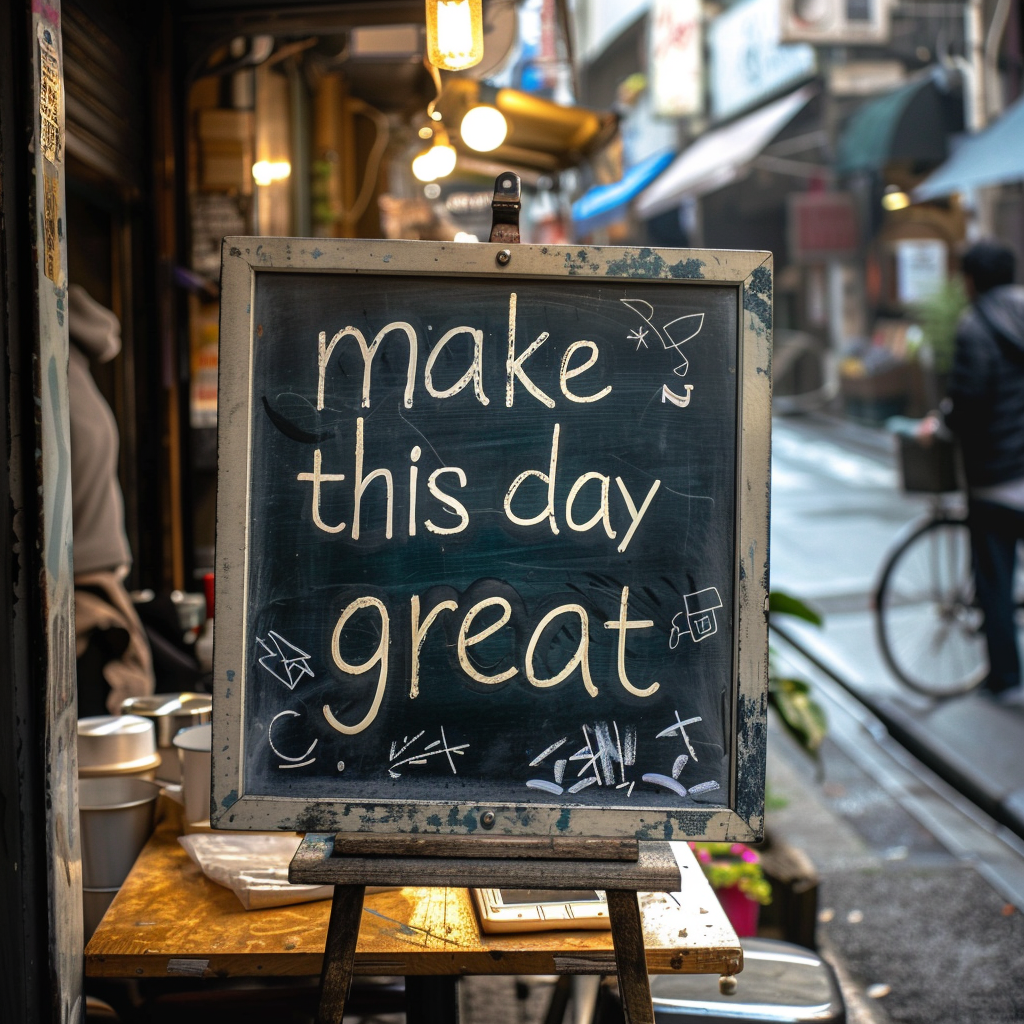 make
this day
great